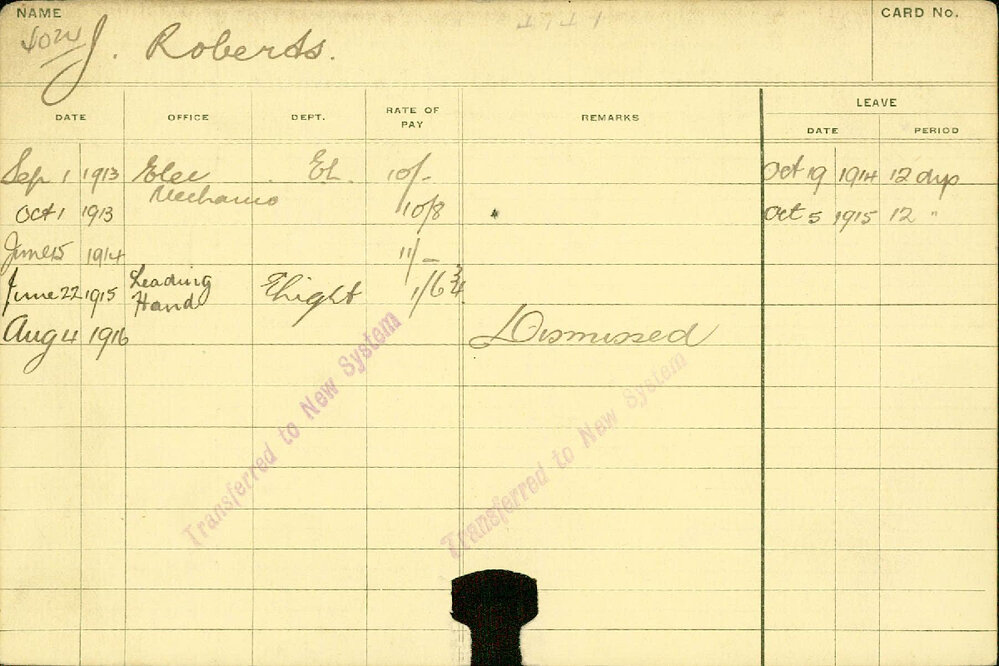 NAME
CARD No.
J. Roberts.
LEAVE
DATE OFFICE DEPT. RATE OF PAY REMARKS DATE PERIOD
Sep 1 1913 Elec El. 10/- Oct 19 1914 12 dys
Mechanic
Oct 1 1913 10/8 Oct 5 1915 12 "
June 15 1914 11/-
June 22 1915 Leading Hand Elight 1/6¾
Aug 4 1916 Dismissed
Transferred to New System
Transferred to New System